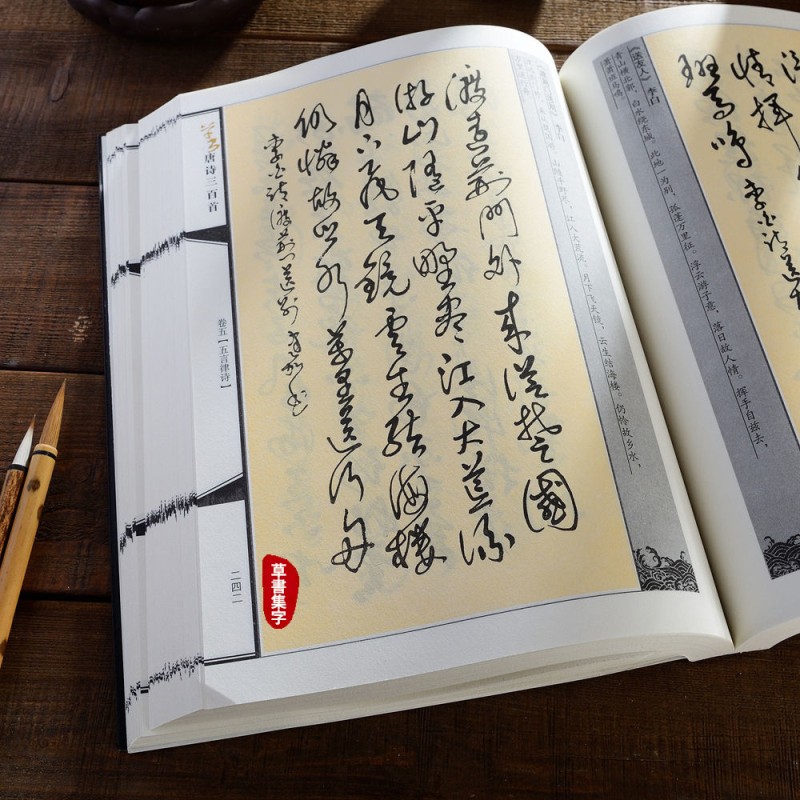 渡远荆门外来从楚国
游山随平野尽江入大荒流
月下飞天镜云生结海楼
仍怜故乡水万里送行舟
李白诗渡荆门送别
唐诗三百首
卷五【五言律诗】
二四二
草書集字
李白
山随平野尽，江入大荒流。月下飞天镜，云生结海楼。仍怜故乡水，
《送友人》李白
青山横北郭，白水绕东城。此地一为别，孤蓬万里征。浮云游子意，落日故人情。挥手自兹去，
萧萧班马鸣。
情挥
班马鸣 李白诗送